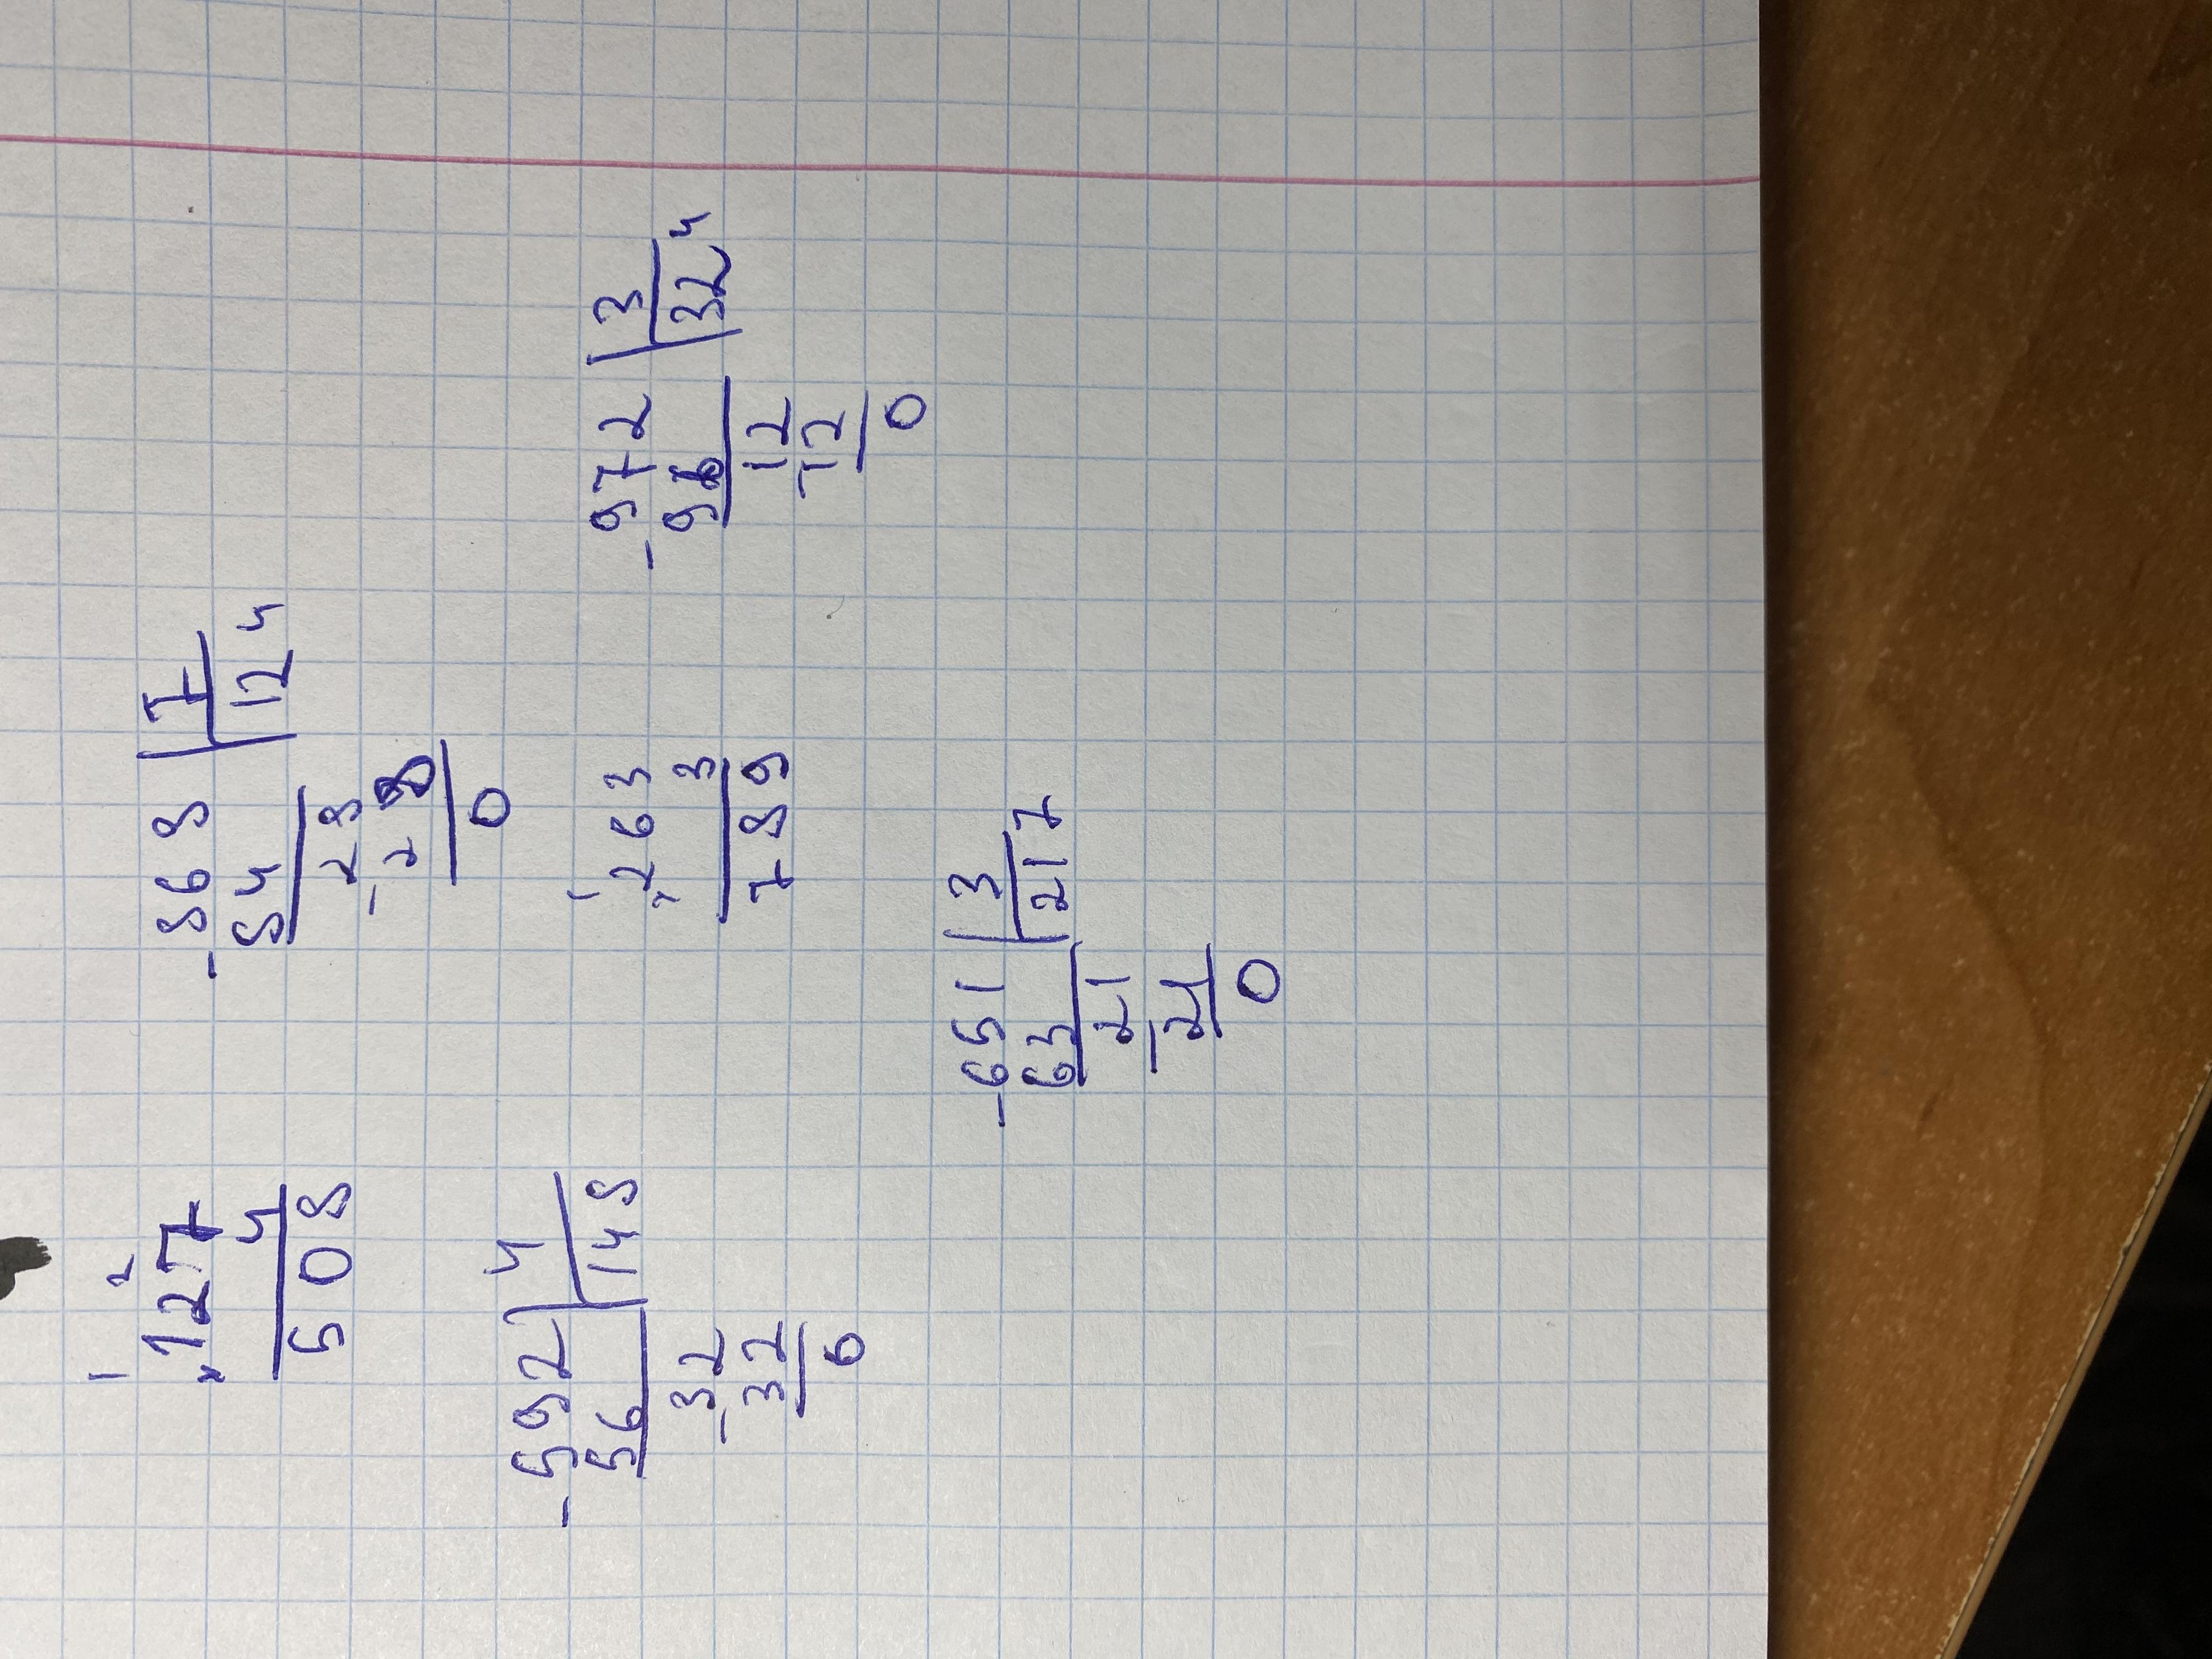 1 2
×127
4
508
-868 | 7
84 | 124
28
-28
0
-592 | 4
56 | 148
-32
32
0
1
×263
3
789
-972 | 3
96 | 324
12
-12
0
-651 | 3
63 | 217
21
-21
0